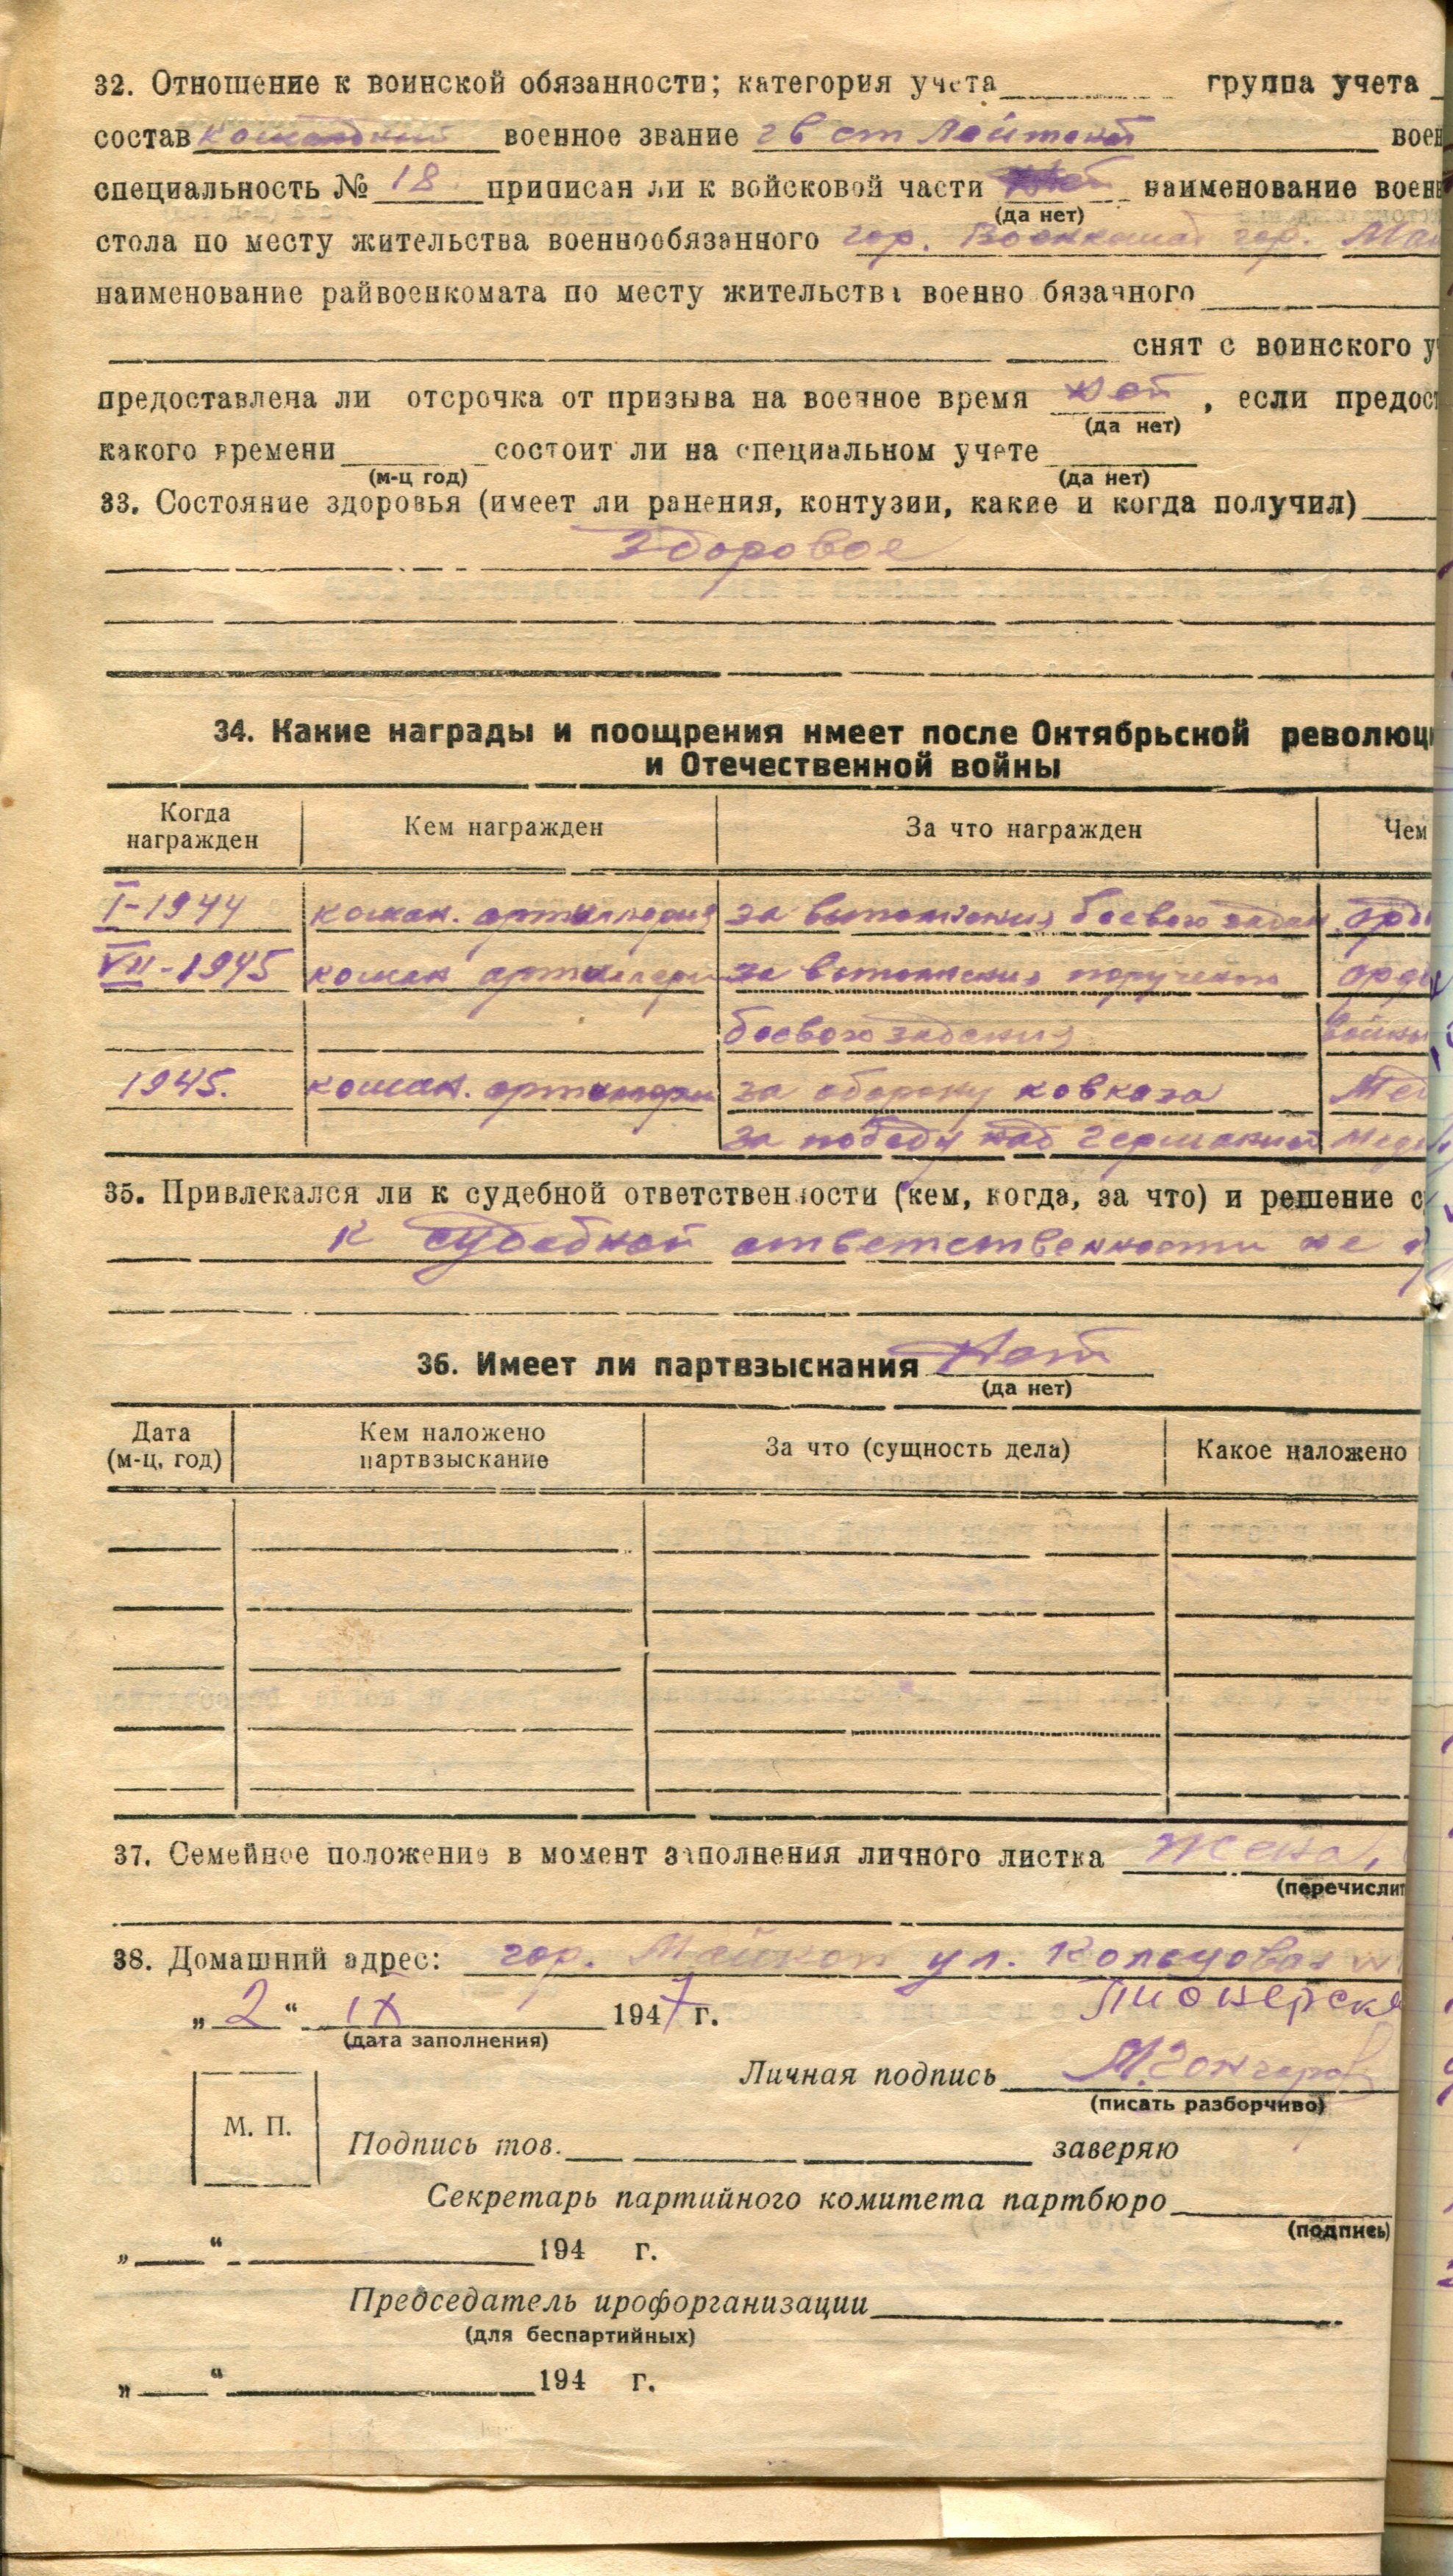 32. Отношение к воинской обязанности; категория учета группа учета
состав командный военное звание гв ст лейтенат воен
специальность № 18 приписан ли к войсковой части нет наименование воен
(да нет)
стола по месту жительства военнообязанного гор. Военкомат гор. Май
наименование райвоенкомата по месту жительства военно бязанного
снят с воинского у
предоставлена ли отсрочка от призыва на военное время нет , если предос
(да нет)
какого времени состоит ли на специальном учете
(м-ц год) (да нет)
33. Состояние здоровья (имеет ли ранения, контузии, какие и когда получил)
Здоровое
34. Какие награды и поощрения имеет после Октябрьской революц
и Отечественной войны
Когда награжден Кем награжден За что награжден Чем
I-1944 коман. артиллерия за выполнения боевого задан орд
VII-1945 коман артиллери за выполнения порученого орд
боевого задания войны
1945. коман. артиллери за оборону кавказа Мед
за победу над германией мед
35. Привлекался ли к судебной ответственности (кем, когда, за что) и решение с
к судебной ответственности не
36. Имеет ли партвзыскания Нет
(да нет)
Дата (м-ц, год) Кем наложено партвзыскание За что (сущность дела) Какое наложено
37. Семейное положение в момент заполнения личного листка жена,
(перечислит
38. Домашний адрес: гор. Майкоп ул. Кольцовая
Пионерска
„ 2 “ IX 1947 г.
(дата заполнения)
Личная подпись М. Гончаров
(писать разборчиво)
М. П.
Подпись тов. заверяю
Секретарь партийного комитета партбюро
(подпись)
„ “ 194 г.
Председатель профорганизации
(для беспартийных)
„ “ 194 г.